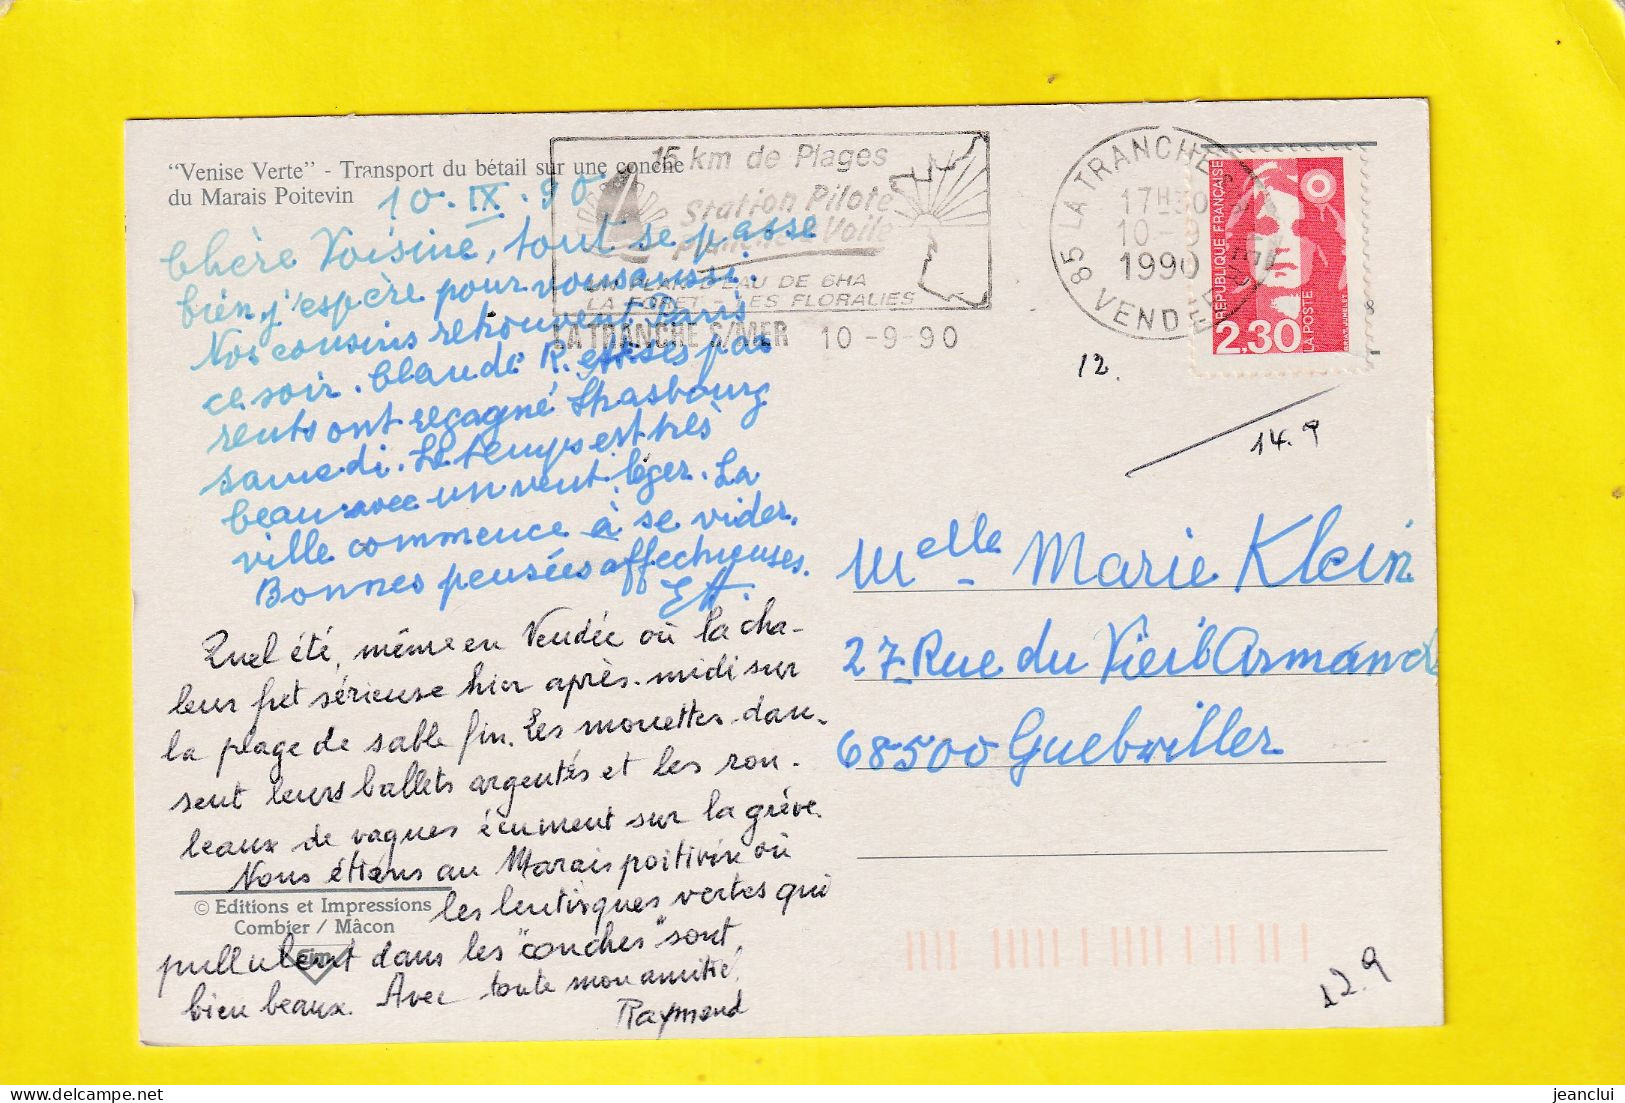 "Venise Verte" - Transport du bétail sur une conche
du Marais Poitevin
10.IX.90
Chère Voisine, tout se passe
bien, j'espère pour vous aussi.
Nos cousins retrouvent Paris
ce soir. Claude R. et ses pa
rents ont regagné Strasbourg
samedi. Le temps est très
beau avec un vent léger. La
ville commence à se vider.
Bonnes pensées affectueuses.
Quel été, même en Vendée où la cha-
leur fut sérieuse hier après-midi sur
la plage de sable fin. Les mouettes dan-
sent leurs ballets argentés et les rou-
leaux de vagues écument sur la grève.
Nous étions au Marais poitivin où
les lentisques vertes qui
pullulent dans les "conches" sont
bien beaux. Avec toute mon amitié,
Raymond
© Editions et Impressions
Combier / Mâcon
15 km de Plages
Station Pilote
Planche à Voile
UN PLAN D'EAU DE 6HA
LA FORET - LES FLORALIES
LA TRANCHE S/MER 10-9-90
85 LA TRANCHE S
17H30
10-9
1990
VENDEE
REPUBLIQUE FRANÇAISE
2,30
LA POSTE
12.
14.9
Melle Marie Klein
27 Rue du Vieil Armand
68500 Guebwiller
12.9
jeanclui